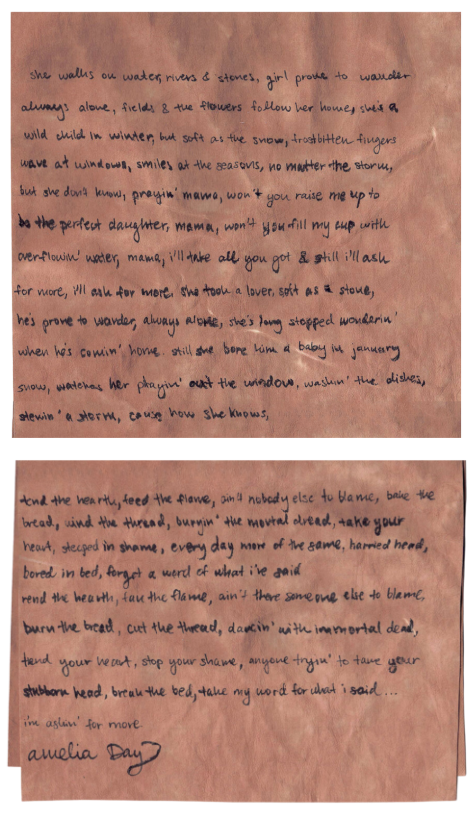 she walks on water, rivers & stones, girl prone to wander
always alone, fields & the flowers follow her home, she's a
wild child in winter, but soft as the snow, frostbitten fingers
wave at windows, smiles at the seasons, no matter the storm,
but she don't know, prayin' mama, won't you raise me up to
be the perfect daughter, mama, won't you fill my cup with
overflowin' water, mama, i'll take all you got & still i'll ask
for more, i'll ask for more. she took a lover, soft as a stone,
he's prone to wander, always alone, she's long stopped wonderin'
when he's comin' home. still she bore him a baby in january
snow, watches her playin' out the window, washin' the dishes,
stewin' a storm, cause now she knows,
tend the hearth, feed the flame, ain't nobody else to blame, bake the
bread, wind the thread, buryin' the mortal dread, take your
heart, steeped in shame, every day more of the same, harried head,
bored in bed, forget a word of what i've said
rend the hearth, fan the flame, ain't there someone else to blame,
burn the bread, cut the thread, dancin' with immortal dead,
tend your heart, stop your shame, anyone tryin' to tame your
stubborn head, break the bed, take my word for what i said...
i'm askin' for more
amelia Day